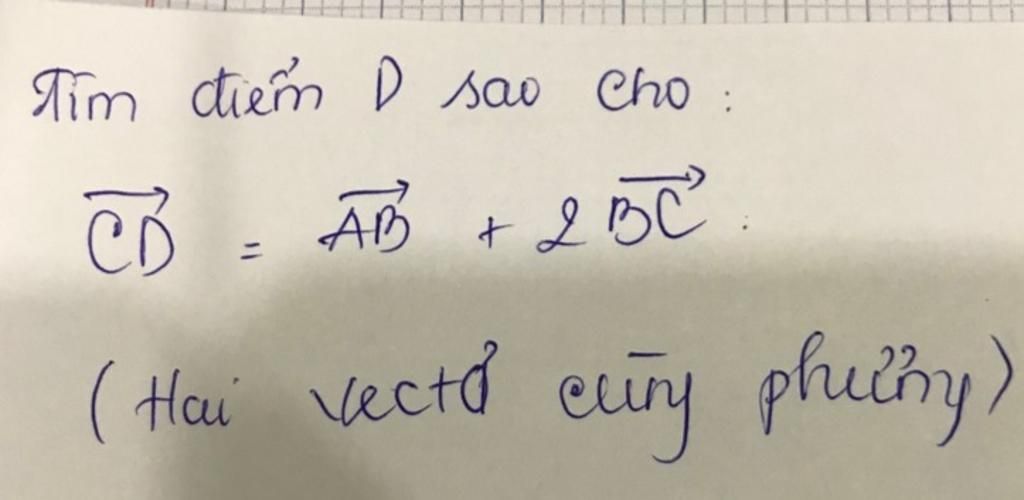 Tìm điểm D sao cho :
→CD = →AB + 2 →BC .
( Hai vectơ cùng phương )